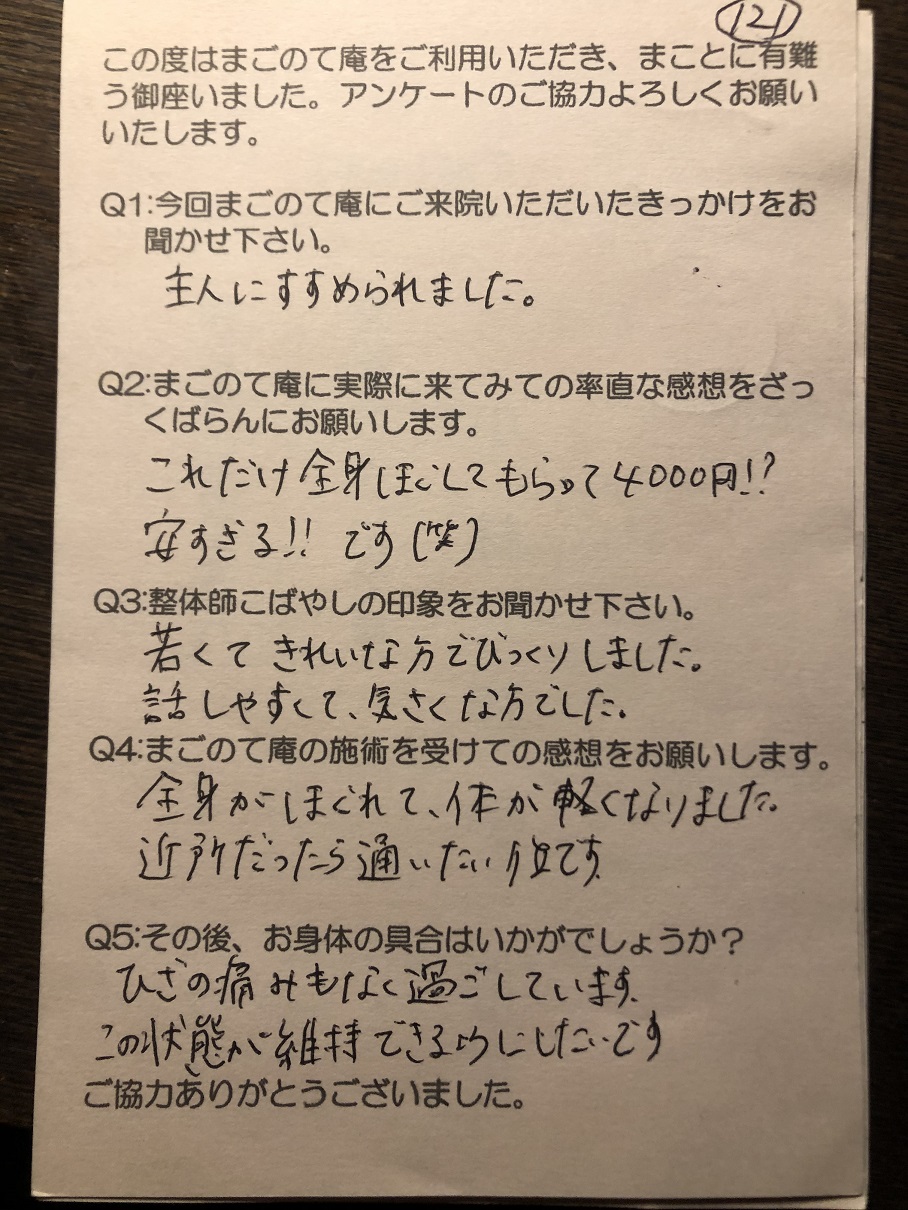 121
この度はまごのて庵をご利用いただき、まことに有難
う御座いました。アンケートのご協力よろしくお願い
いたします。
Q1:今回まごのて庵にご来院いただいたきっかけをお
聞かせ下さい。
主人にすすめられました。
Q2:まごのて庵に実際に来てみての率直な感想をざっ
くばらんにお願いします。
これだけ全身ほぐしてもらって4000円!?
安すぎる!!です(笑)
Q3:整体師こばやしの印象をお聞かせ下さい。
若くてきれいな方でびっくりしました。
話しやすくて、気さくな方でした。
Q4:まごのて庵の施術を受けての感想をお願いします。
全身がほぐれて、体が軽くなりました。
近所だったら通いたい位です。
Q5:その後、お身体の具合はいかがでしょうか?
ひざの痛みもなく過ごしています。
この状態が維持できるようにしたいです
ご協力ありがとうございました。